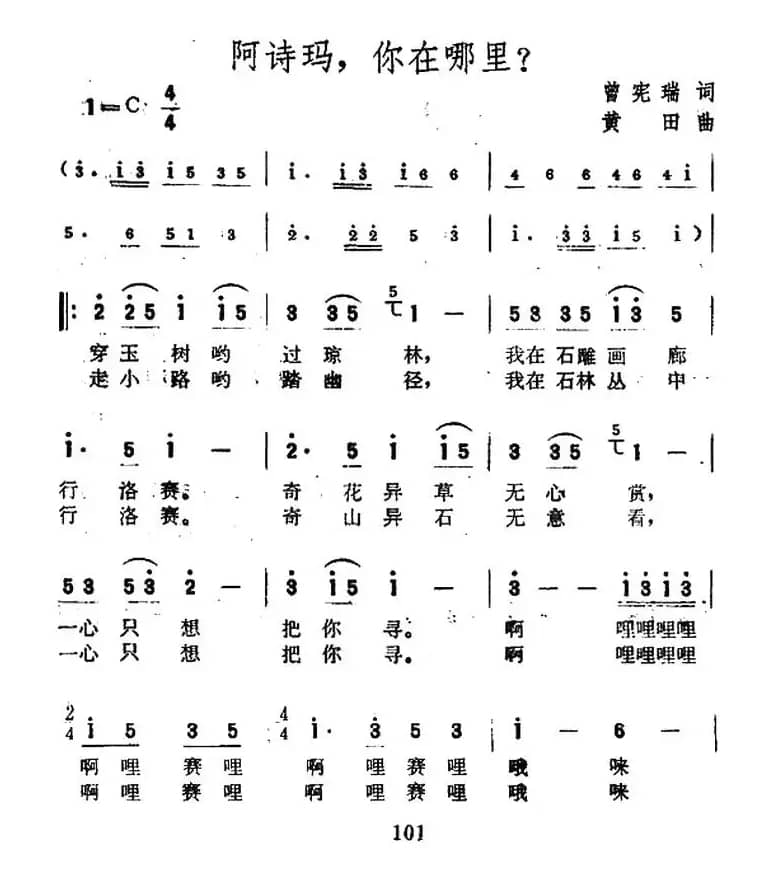 阿诗玛，你在哪里？
1=C 4/4
曾宪瑞 词
黄田 曲
(3. 1 3 1 5 3 5 | 1. 1 3 1 6 6 | 4 6 6 4 6 4 1 |
5. 6 5 1 3 | 2. 2 2 5 3 | 1. 3 3 1 5 1 ) |
‖: 2 2 5 1 1 5 | 3 3 5 5 1 — | 5 3 3 5 1 3 5 |
穿玉树哟 过琼林， 我在石雕画廊
走小路哟 踏幽径， 我在石林丛中
1. 5 1 — | 2. 5 1 1 5 | 3 3 5 5 1 — |
行洛赛。 奇花异草 无心赏，
行洛赛。 奇山异石 无意看，
5 3 5 3 2 — | 3 1 5 1 — | 3 — — 1 3 1 3 |
一心只想 把你寻。 啊 哩哩哩哩
一心只想 把你寻。 啊 哩哩哩哩
2/4 1 5 3 5 | 4/4 1. 3 5 3 | 1 — 6 — |
啊哩赛哩 啊哩赛哩 哦 咪
啊哩赛哩 啊哩赛哩 哦 咪
101